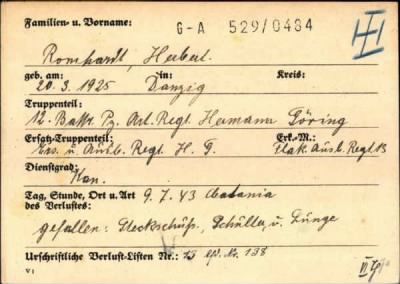 Familien- u. Vorname: G-A 529/0484
Romhardt, Herbert.
geb. am: in: Kreis:
20.3.1925 Danzig
Truppenteil:
12. Battr. Pz. Art. Regt. Hermann Göring
Ersatz-Truppenteil: Erk.-M.:
Ers. u. Ausb. Regt. H. G. Flak Ausb. Regt
Dienstgrad:
Kan.
Tag, Stunde, Ort u. Art 9.7.43 Catania
des Verlustes:
gefallen: Steckschüsse, Schulter u. Lunge
Urschriftliche Verlust-Listen Nr.: 13 lfd. Nr. 138
V I